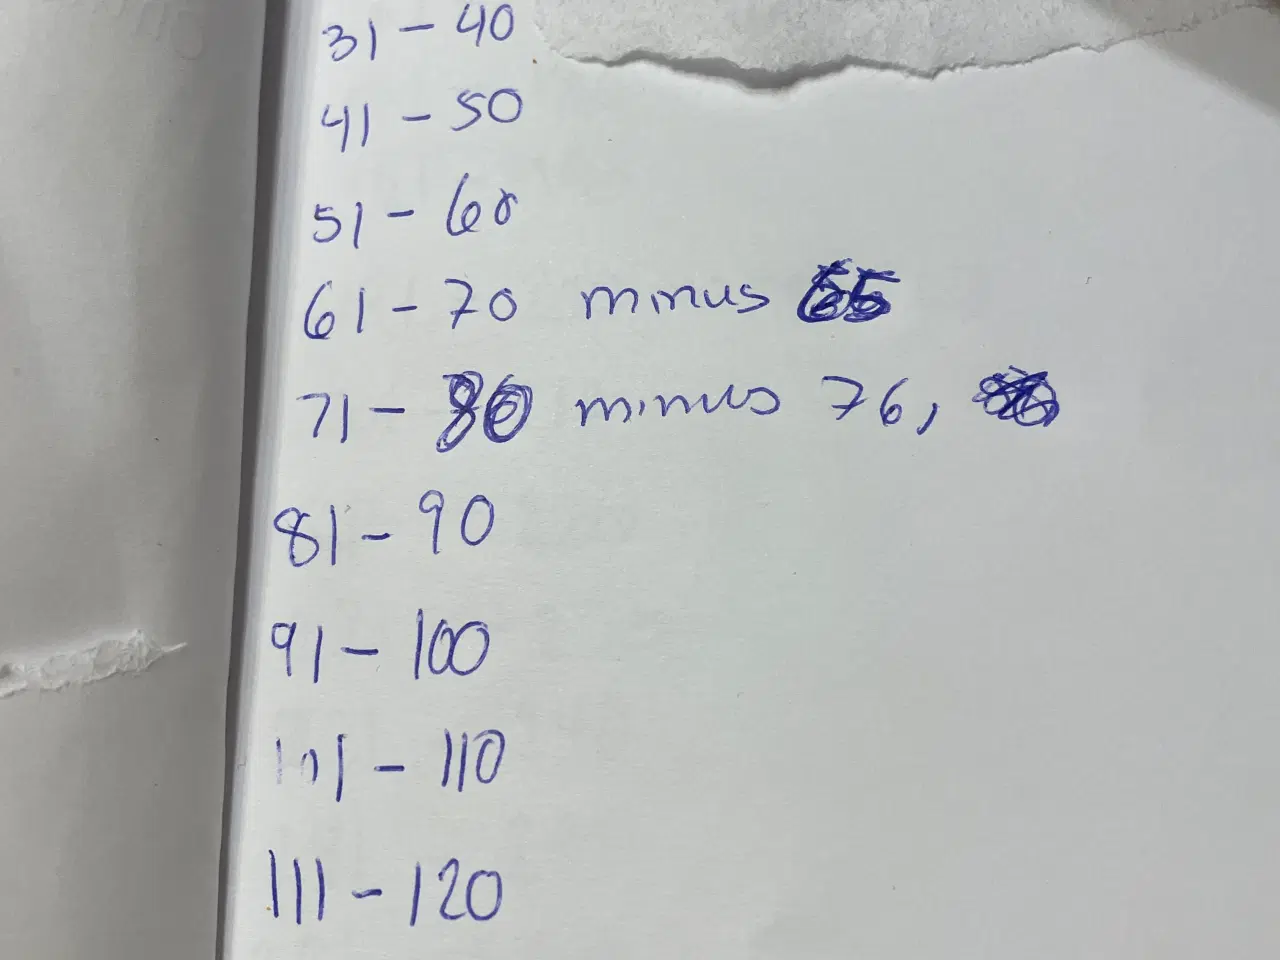 31 - 40
41 - 50
51 - 60
61 - 70 minus 65
71 - 80 minus 76,
81 - 90
91 - 100
101 - 110
111 - 120